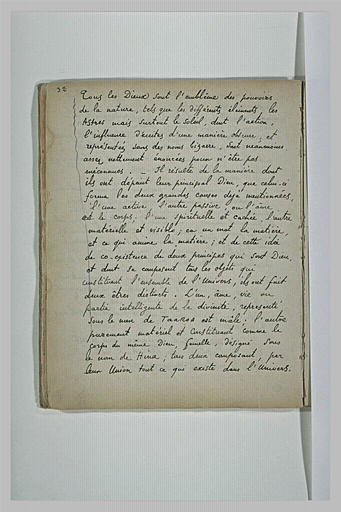 32
Tous les Dieux sont l'emblême des pouvoirs
de la nature, tels que les différents éléments, les
Astres mais surtout le soleil, dont l'action,
l'influence décrites d'une manière obscure, et
représentés sous des noms bizarre, sont néanmoins
assez nettement énoncées pour n'être pas
méconnues. — Il résulte de la manière dont
ils ont dépeint leur principal Dieu, que celui-ci
forma les deux grandes causes déjà mentionnées,
l'une active, l'autre passive, ou l'âme
et le corps. l'une spirituelle et cachée l'autre
matérielle et visible; en un mot la matière,
et ce qui anime la matière; et de cette idée
de co-existence de deux principes qui sont Dieu,
et dont se composent tous les objets qui
constituent l'ensemble de l'Univers, ils ont fait
deux êtres distincts. L'un, âme, vie ou
partie intelligente de la divinité, représenté
sous le nom de Taaroa est mâle. l'autre
purement matériel et constituant comme le
corps du même Dieu, femelle, désigné sous
le nom de Hina; tous deux composant, par
leur Union tout ce qui existe dans l'Univers.